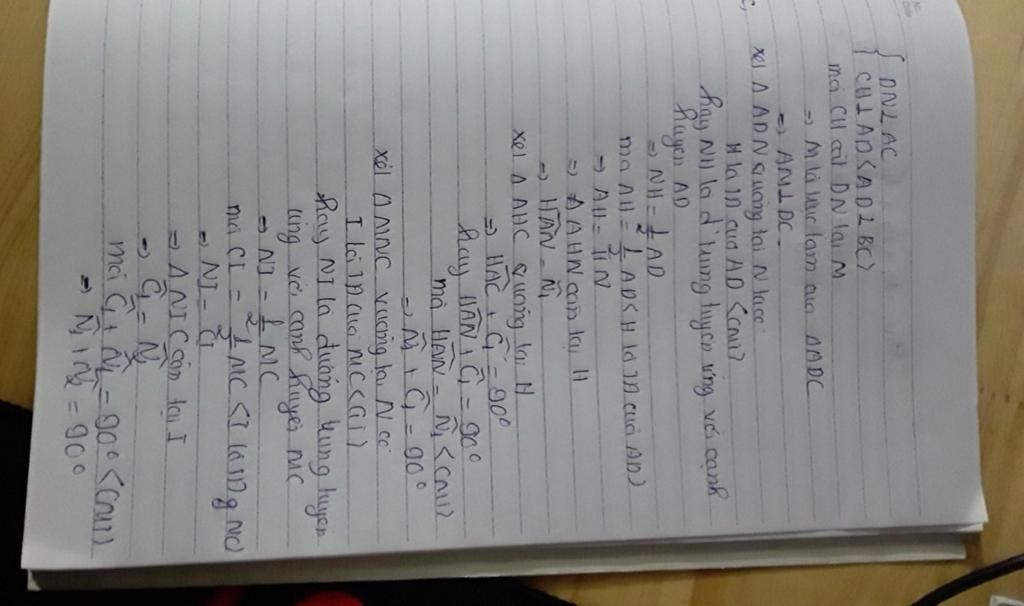 DN⊥AC
CH⊥AD<AD⊥BC>
mà CH cắt DN tại M
=> M là trực tâm của AMDC
=> AM⊥DC.
c,
xét Δ ADN vuông tại N ta có
H là TĐ của AD <cmt>
hay NH là đ' trung tuyến ứng với cạnh
huyền AD
=> NH = 1/2 AD
mà AH = 1/2 AD<H là TĐ của AD>
=> AH = HN
=> Δ AHN cân tại H
=> HAN = N₁
xét Δ AHC vuông tại H
=> HAC + C₁ = 90°
hay HAN + C₁ = 90°
mà HAN = N₁ <cmt>
=> N₁ + C₁ = 90°
xét Δ MNC vuông tại N có
I là TĐ của MC <gt>
hay NI là đường trung tuyến
ứng với cạnh huyền MC
=> NI = 1/2 MC
mà CI = 1/2 MC <I là TĐ g MC>
=> NI = CI
=> Δ NIC cân tại I
=> C₁ = N₂
mà C₁ + N₁ = 90° <cmt>
=> N₁ + N₂ = 90°